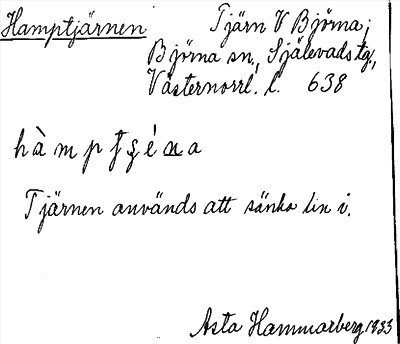 Hamptjärnen Tjärn V Björna;
Björna sn, Själevads tg,
Västernorrl. l. 638
Tjärnen används att sänka lin i.
Asta Hammarberg 1933